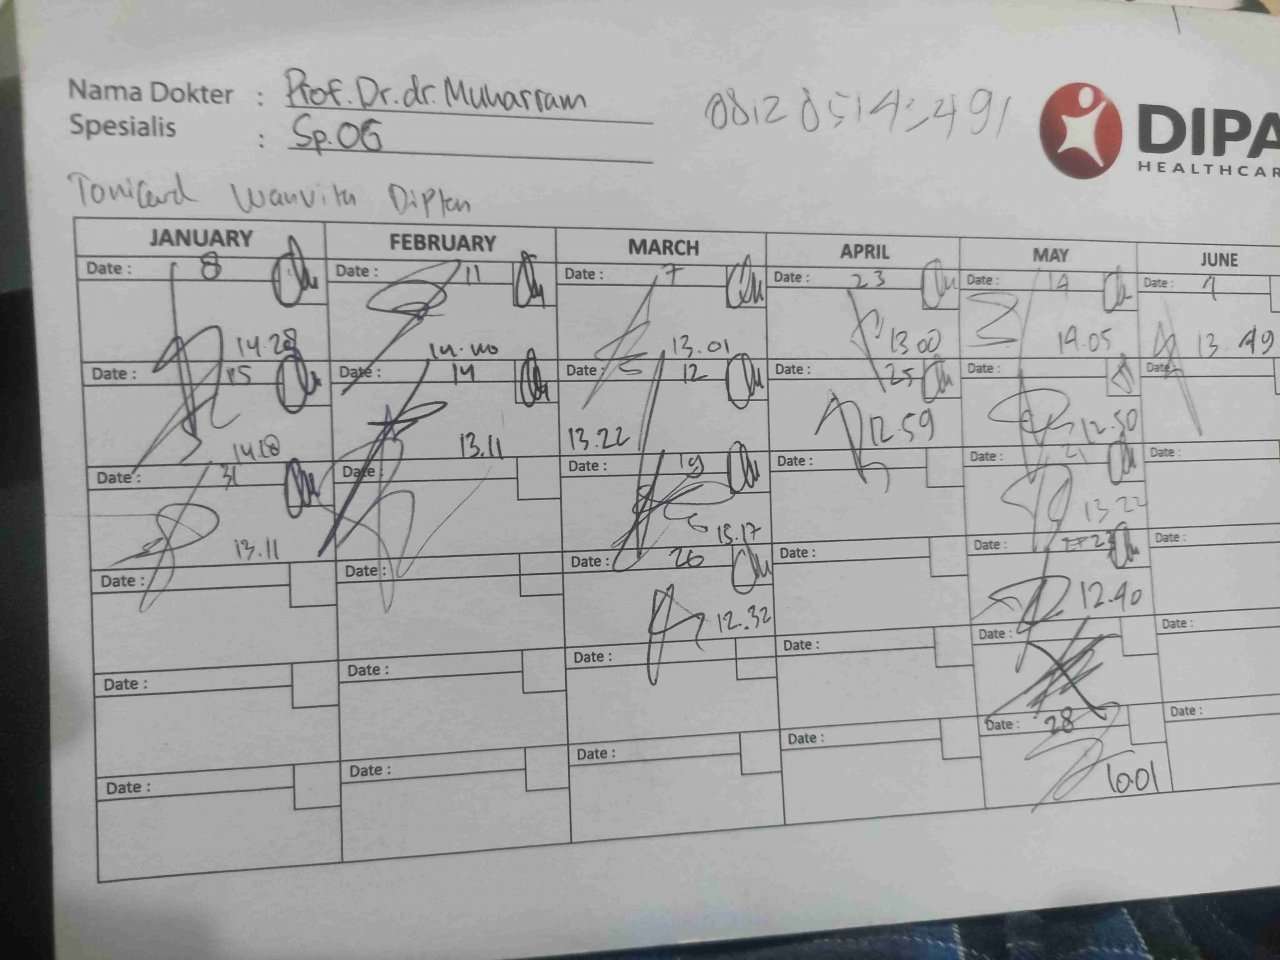 Nama Dokter : Prof. Dr. dr. Muharram
Spesialis : Sp.OG
DIPA
HEALTHCAR
JANUARY FEBRUARY MARCH APRIL MAY JUNE
Date : 8 Date : 11 Date : 7 Date : 23 Date : 14 Date :
14.28 14.40 13.01 13.00 14.05 13.49
Date : 15 Date : 14 Date : 12 Date : 25 Date : Date :
13.11 13.22 12.59 12.50
Date : 31 Date : Date : 19 Date : Date : 21 Date :
13.11 13.17 13.22
Date : Date : Date : 26 Date : Date : 23 Date :
12.32 12.40
Date : Date : Date : Date : Date : Date :
Date : Date : Date : Date : Date : 28 Date :